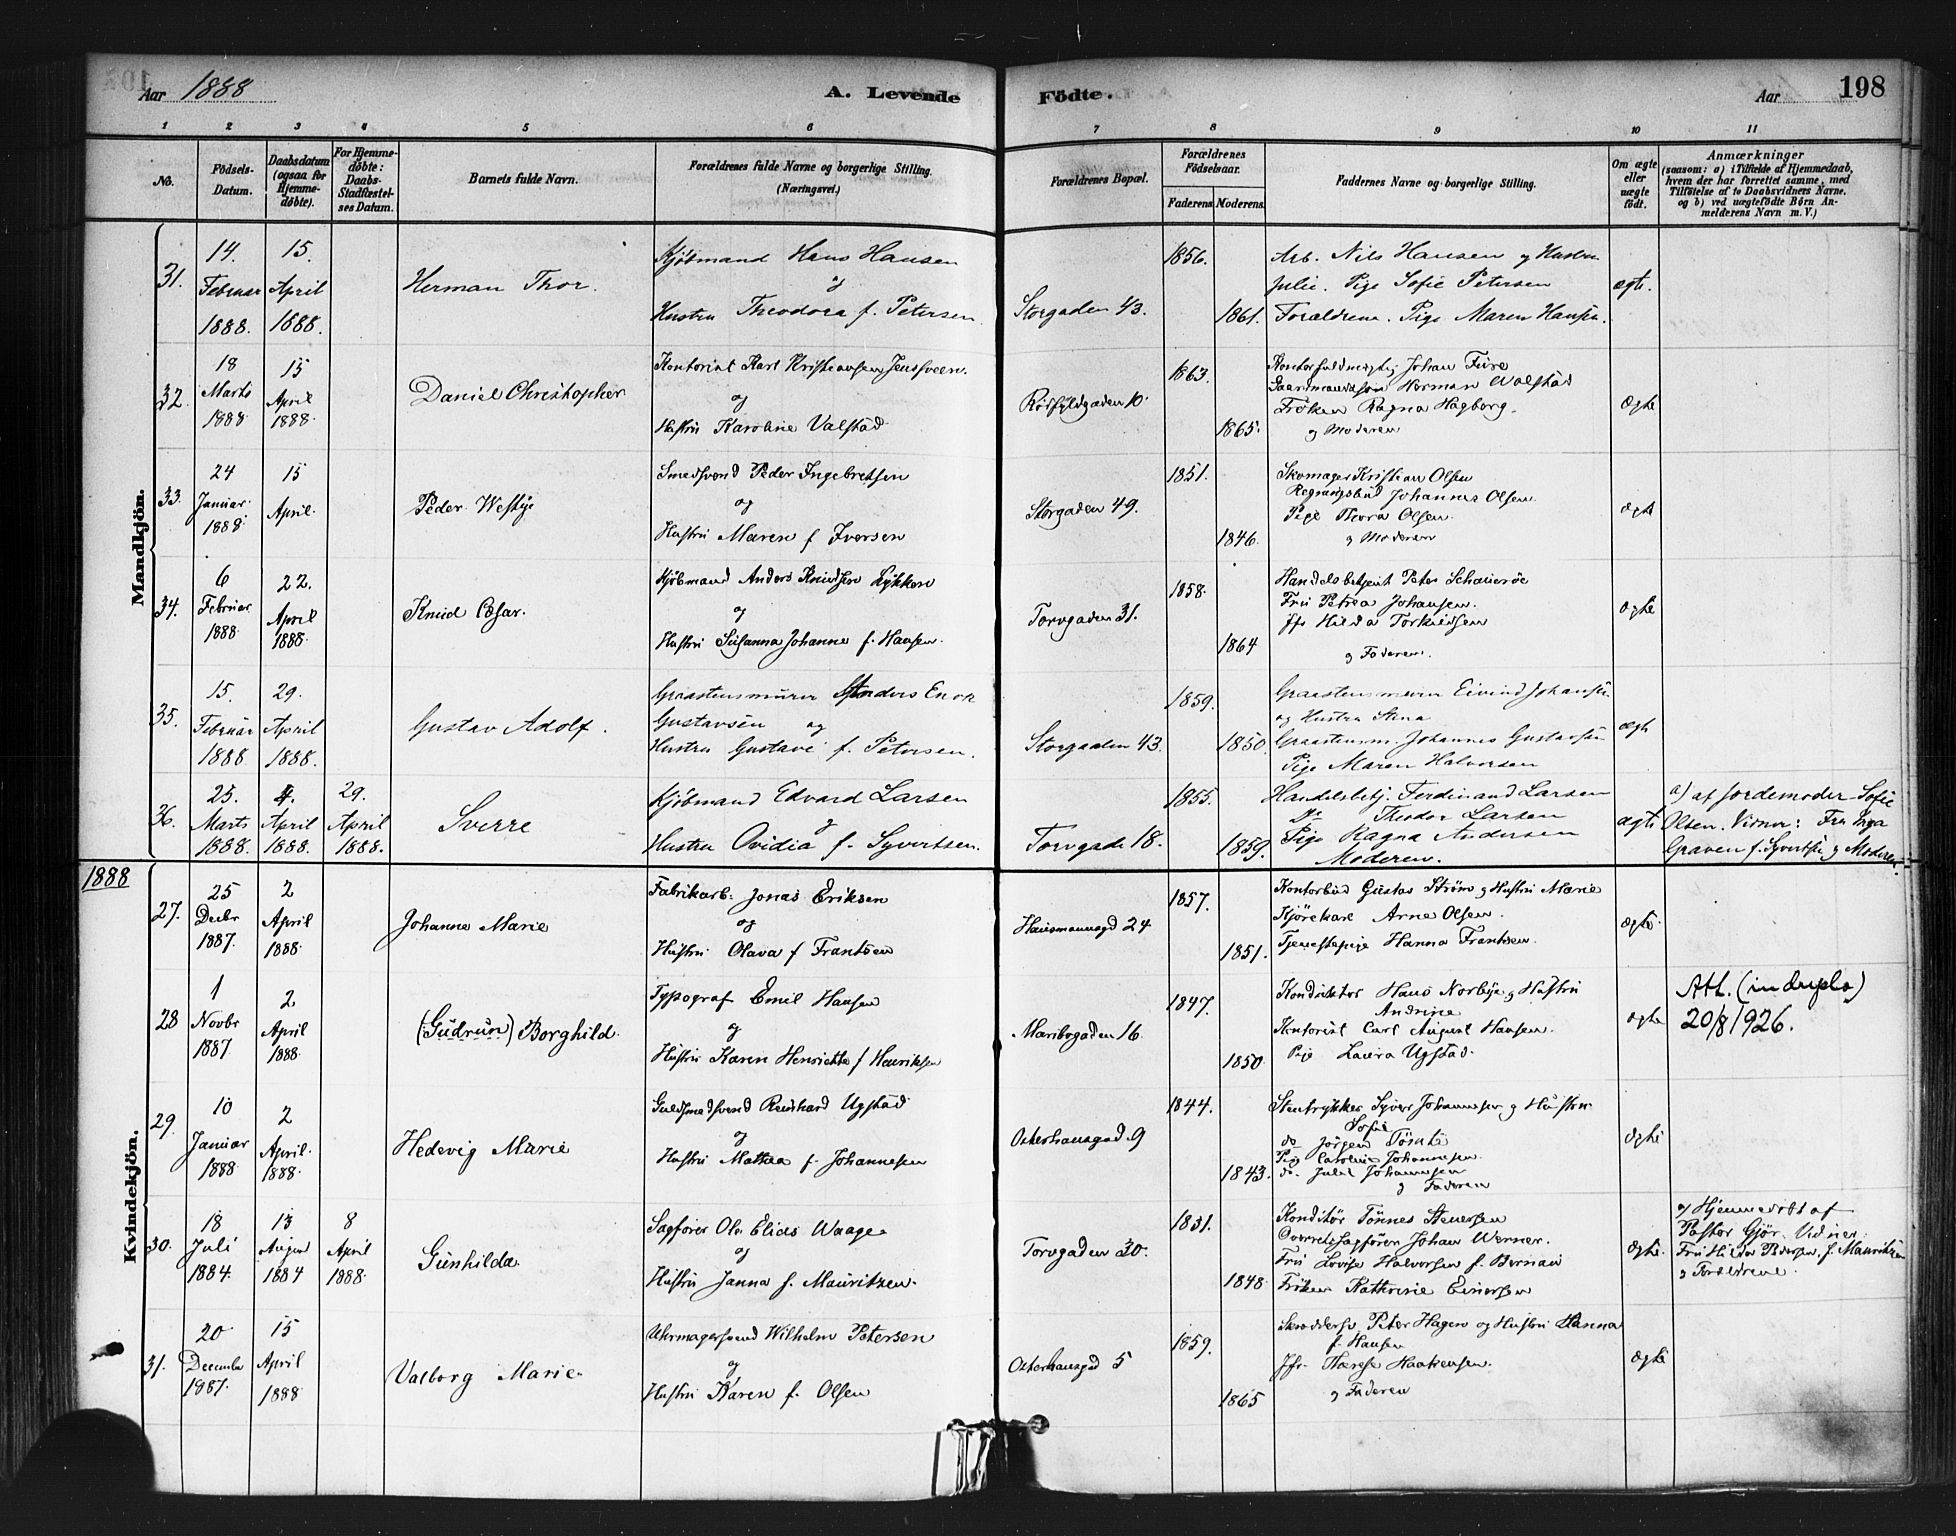 Aar 1888
A. Levende Födte.
Aar 198
1 2 3 4 5 6 7 8 9 10 11
No.
Födsels-Datum.
Daabsdatum (ogsaa for Hjemmedöbte).
For Hjemmedøbte: Daabs-Stadfæstelses Datum.
Barnets fulde Navn.
Forældrenes fulde Navne og borgerlige Stilling. (Næringsvei.)
Forældrenes Bopæl.
Forældrenes Födselsaar.
Faderens. Moderens.
Faddernes Navne og borgerlige Stilling.
Om ægte eller uægte födt.
Anmærkninger
(saasom: a) i Tilfælde af Hjemmedaab, hvem der har forrettet samme, med Tilföielse af to Daabsvidners Navne, og b) ved uægtefödte Börn Anmelderens Navn m. V.)
Mandkjön.
31. 14. Februar 1888. 15. April 1888.
Herman Thor.
Kjøbmand Hans Hansen
og
Hustru Theodora f. Petersen.
Storgaden 43.
1856.
1861.
Arb. Nils Hansen og Hustru
Julie. Pige Sofie Petersen
Forældrene. Pige Maren Hansen.
ægte.
32. 18 Marts 1888 15 April 1888.
Daniel Christopher
Kontorist Karl Kristiansen Jensveen.
og
Hustru Karoline Valstad
10.
1863.
1865.
Johan Fure
Herman Valstad
Frøken Ragna Hagborg.
og Moderen
Ægte
33. 24 Januar 1888. 15 April.
Peder Westye
Smedsvend Peder Ingebretsen
og
Hustru Maren f Iversen
Storgaden 49.
1851.
1846.
Skomager Kristian Olsen
Regningsbud Johannes Olsen.
Pige Thora Olsen.
og Moderen
ægte
34. 6 Februar 1888. 22. April 1888.
Knud Cæsar.
Kjøbmand Anders Knudsen Lykken
og
Hustru Susanna Johanne f. Hansen.
Torvgaden 31.
1858.
1864
Handelsbetjent Peter
Fru Petrea Johansen.
Jfr Hilda Torkildsen
og Faderen.
ægte
35. 15. Februar 1888 29. April 1888.
Gustav Adolf.
Graastensmurer Anders Enok
Gustavsen og
Hustru Gustave f. Petersen.
Storgaden 43.
1859.
1850.
Graastensmurer Eivind Johansen
og Hustru Stina
Graastensm. Johannes Gustavsen
Pige Maren Halvorsen
ægte
36. 25. Marts 1888. 4. April 1888. 29. April 1888.
Sverre
Kjøbmand Edvard Larsen
og
Hustru Ovidia f. Syvertsen.
Torvgade 18.
1855.
1859.
Handelsbetj. Ferdinand Larsen
Do Theodor Larsen
Pige Ragna Andersen
Moderen.
ægte
a) af Jordemoder Sofie
Olsen. Vidner: Fru Inga
Graven f. Syvertsen og Moderen.
1888
Kvindekjön.
27. 25 Decbr 1887. 2 April 1888
Johanne Marie
Fabrikarb. Jonas Eriksen
og
Hustru Olava f Frantsen
Hausmannsgd 24
1857.
1851.
Kontorbud Gustav Strøm og Hustru Marie
Kjørekarl Arne Olsen.
Tjenestepige Hanna Frantsen.
ægte.
28 1 Novbr 1887. 2 April 1888.
(Gudrun) Borghild.
Typograf Emil Hansen
og
Hustru Karen Henriette f Henriksen
Maribogaden 16.
1847.
1850
Konduktør Hans Norbye og Hustru
Andrine
Kontorist Carl August Hansen.
Pige Laura Ugstad.
ægte
Att. (in duplo)
20/8 1926.
29. 10 Januar 1888 2 April. 1888.
Hedevig Marie
Guldsmedsvend Reinhard Ugstad
og
Hustru Mathea f. Johannesen
Osterhausgad. 9
1844.
1843.
Stentrykker Syver Johannesen og Hustru
Sofie
do Jörgen Tömte
Pige Caroline Johannesen.
do. Julie Johannesen
og Faderen
Ægte
30. 18 Juli 1884. 13 August 1884 8 April 1888.
Gunhilda
Sagfører Ole Elias Waage
og
Hustru Janna f. Mauritzen.
Torvgaden 30.
1831.
1848.
Konditor Tönnes Stenersen
Overretssagfører Johan Werner.
Fru Lovise Halvorsen f. Bernau
Frøken Kathrine Einersen
Ægte.
a) Hjemmedøbt af
Pastor Gjør. Vidner:
Fru Hilda Pedersen f. Mauritzen
og Forældrene.
31. 20 December 1887. 15 April 1888
Valborg Marie
Uhrmagersvend Wilhelm Petersen
og
Hustru Karen f. Olsen
Osterhausgd 5
1859.
1865
Skræddersv Peter Hagen og Hustru Hanna
f. Hansen
Jfr. Therese Haakensen.
og Faderen
Ægte